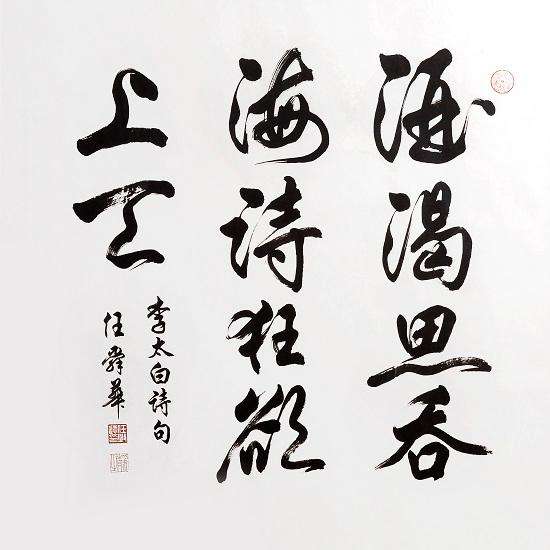 酒渴思吞
海詩狂欲
上天
李太白诗句
任舜華